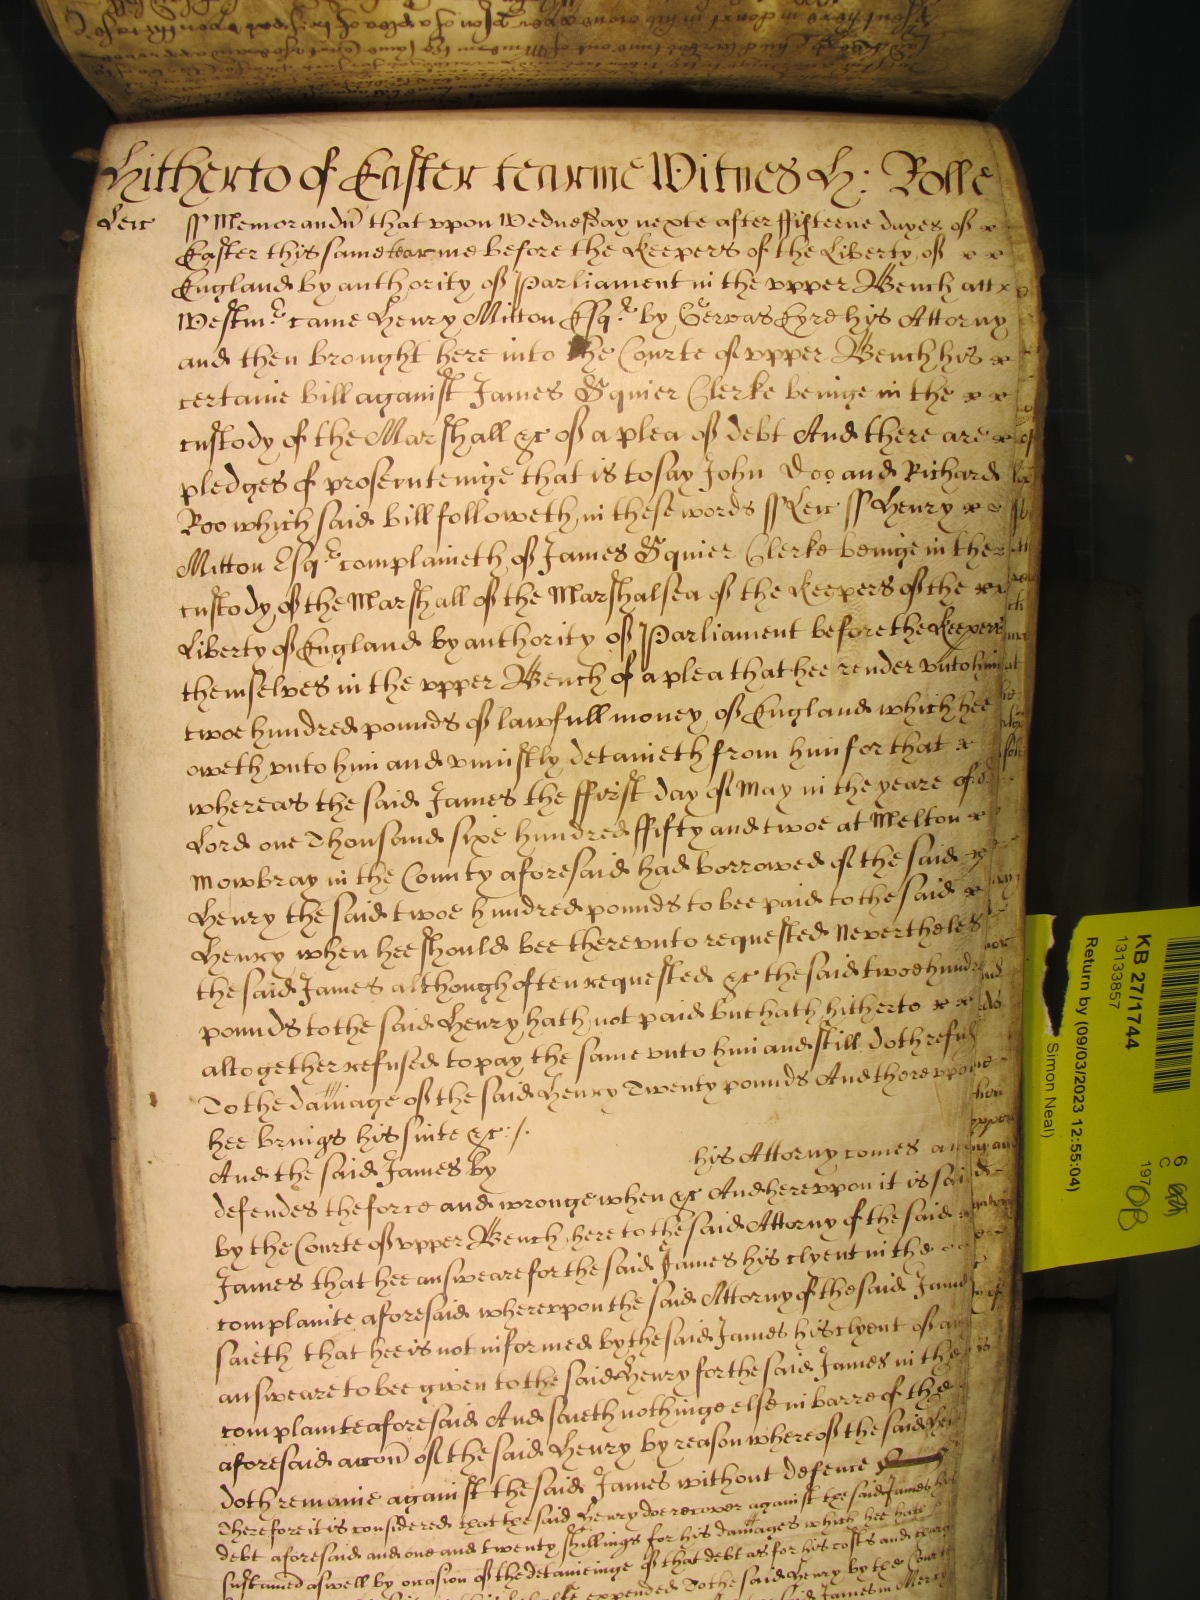 Hitherto of Easter tearme Witnes H: Rolle
Leic ss Memorandū that vpon Wednesday nexte after ffifteene dayes of
Easter this same tearme before the Keepers of the Liberty of
England by authority of Parliament in the vpper Bench att
Westmr came Henry Mitton Esqr by Gervas Eyre his Attorny
and then brought here into the Courte of vpper Bench his
certaine bill against James Squier Clerke beinge in the
custody of the Marshall &c of a plea of debt And there are
pledges of prosecuteinge that is to say John Doo and Richard
Roo which said bill followeth in these words ss Leic ss Henry
Mitton Esqr complaineth of James Squier Clerke beinge in the
custody of the Marshall of the Marshalsea of the Keepers of the
Liberty of England by authority of Parliament before the Keepers
themselves in the vpper Bench of a plea that hee render vnto him
twoe hundred pounds of lawfull money of England which hee
oweth vnto him and vniustly detaineth from him for that
whereas the said James the ffirst day of May in the yeare of
Lord one Thousand sixe hundred ffifty and twoe at Melton
Mowbray in the County aforesaid had borrowed of the said
Henry the said twoe hundred pounds to bee paid to the said
Henry when hee should bee therevnto requested Nevertheles
the said James although often requested &c the said twoe hundred
pounds to the said Henry hath not paid but hath hitherto
altogether refused to pay the same vnto him and still doth refuse
To the damage of the said Henry Twenty pounds And therevpon
hee brings his suite &c:/.
And the said James by his Attorny comes and
defendes the force and wronge when &c And herevpon it is said
by the Courte of vpper Bench here to the said Attorny of the said
James that hee answeare for the said James his clyent in the
complainte aforesaid wherevpon the said Attorny of the said James
saieth that hee is not informed by the said James his clyent of an
answeare to bee given to the said Henry for the said James in the
complainte aforesaid And saieth nothinge else in barre of the
aforesaid accon̄ of the said Henry by reason whereof the said Hen
doth remaine against the said James without defence
Therefore it is considered that the said Henry doe recover against the said James his
debt aforesaid and one and twenty shillings for his damages which hee hath
sustained aswell by occasion of the detaineinge of that debt as for his costs and
expended To the said Henry by the Court
said James in Mercy
KB 27/1744
13133857
Return by (09/03/2023 12:55:04)
Simon Neal)
6
C
197